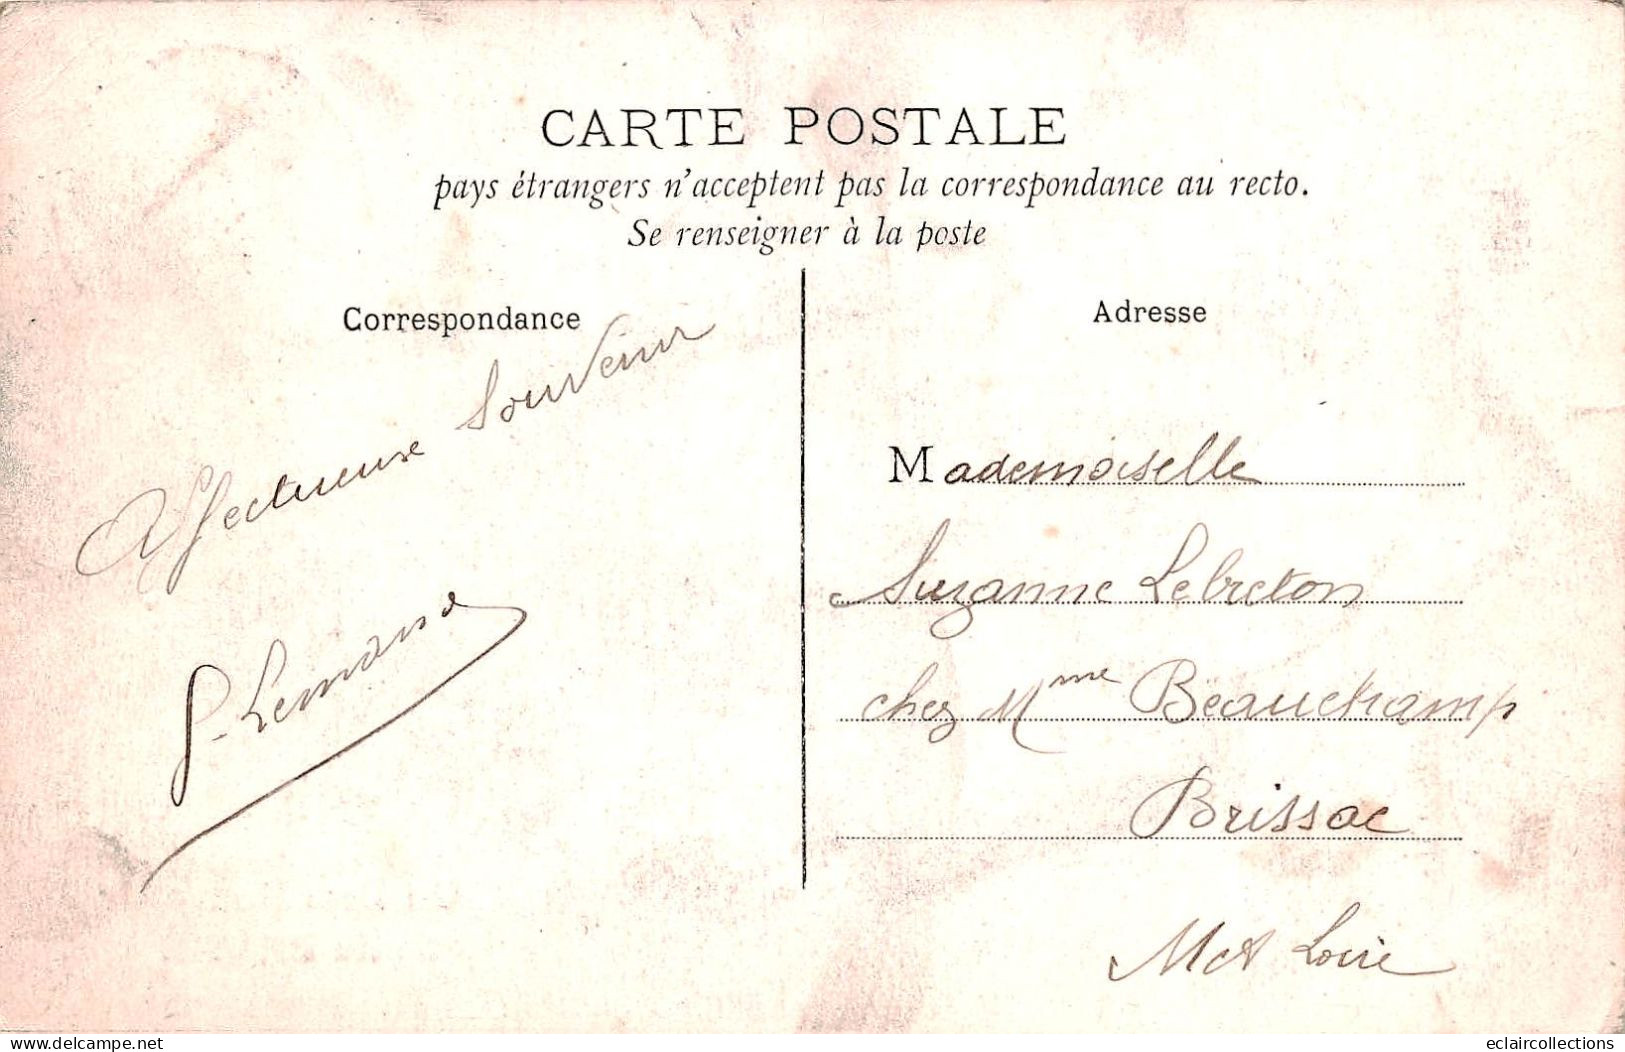 CARTE POSTALE
pays étrangers n'acceptent pas la correspondance au recto.
Se renseigner à la poste
Correspondance
Affectueuse Souvenir
Adresse
Mademoiselle
Suzanne Lebreton
chez Mme Beauchamp
Brissac
M et Loire
eclaircollections